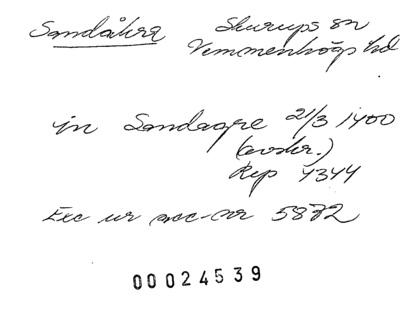 Sandåkra Skurups sn
Vemmenhögs hd
in Sandagre 21/3 1400
(avskr.)
Rep 4344
Exc ur acc-nr 5872
00024539